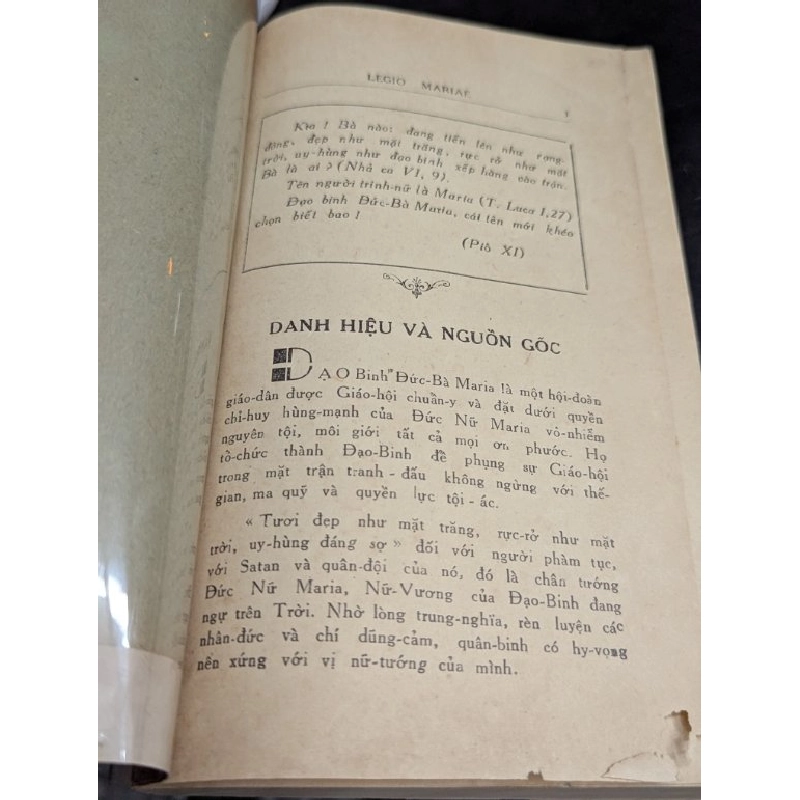 LEGIO MARIAE
Kìa ! Bà nào: đang tiến lên như rạng
đông, đẹp như mặt trăng, rực rỡ như mặt
trời, uy-hùng như đạo binh xếp hàng vào trận.
Bà là ai ? (Nhã ca VI, 9).
Tên người trinh-nữ là Maria (T. Luca I,27)
Đạo binh Đức-Bà Maria, cái tên mới khéo
chọn biết bao !
(Piô XI)
DANH HIỆU VÀ NGUỒN GỐC
ĐẠO Binh Đức-Bà Maria là một hội-đoàn
giáo-dân được Giáo-hội chuẩn-y và đặt dưới quyền
chỉ-huy hùng-mạnh của Đức Nữ Maria vô-nhiễm
nguyên tội, môi giới tất cả mọi ơn phước. Họ
tổ-chức thành Đạo-Binh để phụng sự Giáo-hội
trong mặt trận tranh-đấu không ngừng với thế-
gian, ma quỷ và quyền lực tội-ác.
« Tươi đẹp như mặt trăng, rực-rỡ như mặt
trời, uy-hùng đáng sợ » đối với người phàm tục,
với Satan và quân-đội của nó, đó là chân tướng
Đức Nữ Maria, Nữ-Vương của Đạo-Binh đang
ngự trên Trời. Nhờ lòng trung-nghĩa, rèn luyện các
nhân-đức và chí dũng-cảm, quân-binh có hy-vọng
nên xứng với vị nữ-tướng của mình.